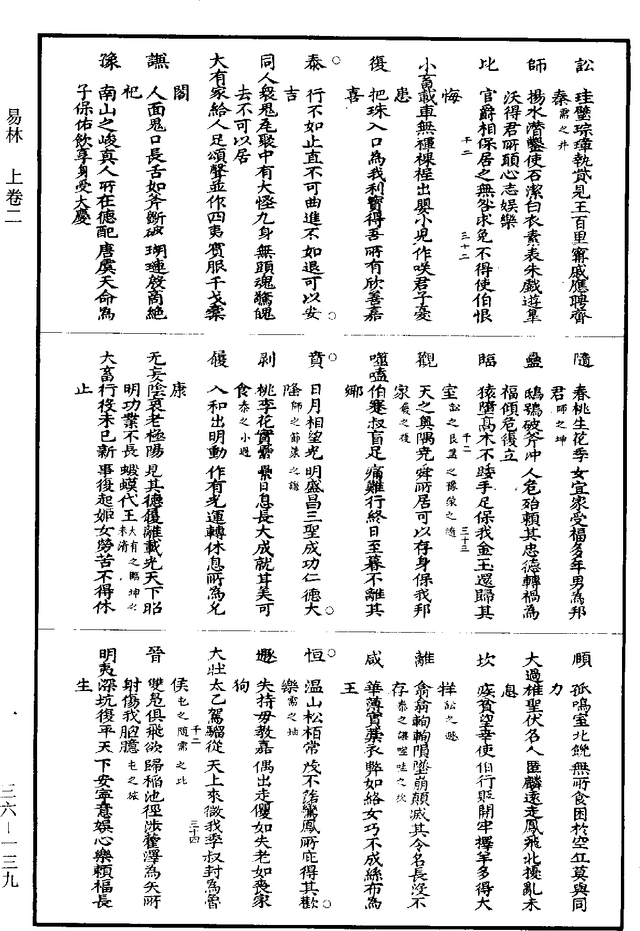 易林　上卷二
訟　珪璧琮璋執贄見王百里甯戚應聘齊
秦需之井
師　揚水潛鑿使石潔白衣素表朱戲遊皋
沃得君所願心志娛樂
比　官爵相保居之無咎求免不得使伯恨
悔
小畜載車無褌裸裎出嬰小兒作咲君子憂
患
復　把珠入口為我利寶得吾所有欣善嘉
喜
泰　行不如止直不可曲進不如退可以安
吉
同人𧚌鬼尾聚中有大怪九身無頭魂驚魄
去不可以居
大有家給人足頌聲並作四夷賓服干戈櫜
閣
謙　人面鬼口長舌如斧斷破瑚璉殷商絕
祀
豫　南山之峻真人所在德配唐虞天命為
子保佑飲享身受大慶
隨　春桃生花季女宜家受福多年男為邦
君師之坤
蠱　鴟鴞破斧沖人危殆賴其忠德轉禍為
福傾危復立
臨　猿墮高木不踒手足保我金玉還歸其
室訟之艮蠱之豫萃之隨
觀　天之奧隅堯舜所居可以存身保我邦
家
噬嗑伯蹇叔盲足痛難行終日至暮不離其
鄉
賁　日月相望光明盛昌三聖成功仁德大
隆師之節萃之謙
剝　桃李花實纍纍日息長大成就甘美可
食泰之小過
復　入和出明動作有光運轉休息所為允
康
无妄陰衰老極陽見其德履離載光天下昭
明功業不長蝦蟆代王大有之臨坤之未濟
大畜行役未已新事復起姬女勞苦不得休
止
頤　孤鳴室北飢無所食困於空丘莫與同
力
大過椎聖伏名人匿麟遠走鳳飛北擾亂未
息
坎　疾貧望幸使伯行販開牢擇羊多得大
牂訟之遯
離　翕翕輷輷隕墜崩顛滅其令名長沒不
存泰之謙噬嗑之坎
咸　華薄實槁衣弊如絡女巧不成絲布為
王
恒　溫山松柏常茂不落鸞鳳所庇得其歡
樂需之坤
遯　失持毋教嘉偶出走傻如失老如喪家
狗
大壯太乙駕騮從天上來徵我季叔封為魯
侯屯之隨需之比
晉　雙鳧俱飛欲歸稻池徑涉雚澤為矢所
射傷我胸臆屯之旅
明夷深坑復平天下安寧意娛心樂賴福長
生
三六－一三九